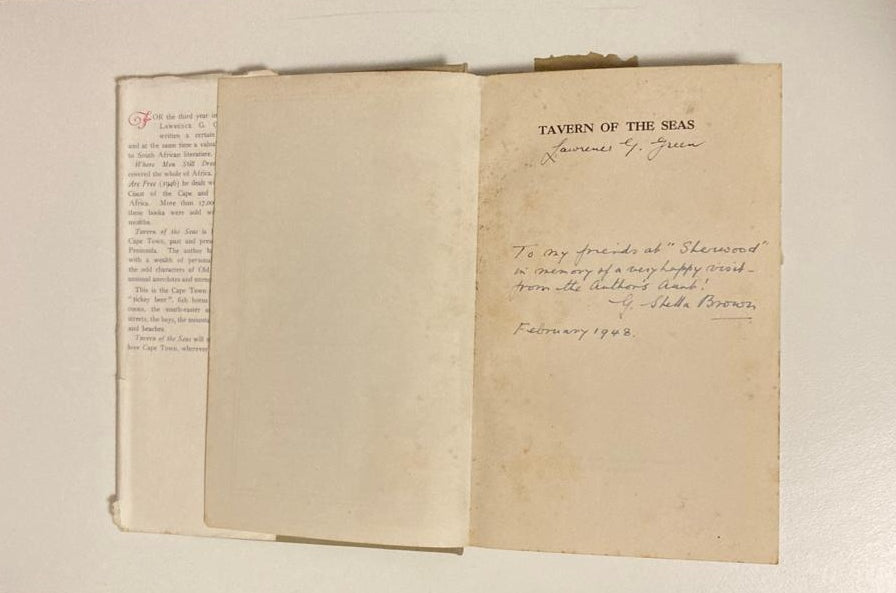 FOR the third year in
LAWRENCE G. G
written a certain
and at the same time a valua
to South African literature.
Where Men Still Drea
covered the whole of Africa.
Are Free (1946) he dealt w
Coast of the Cape and
Africa. More than 17,00
these books were sold wi
months.
Tavern of the Seas is
Cape Town, past and pres
Peninsula. The author h
with a wealth of persona
the odd characters of Old
unusual anecdotes and
This is the Cape Town
"tickey beer", fish horns
the south-easter
streets, the bays, the mounta
and beaches.
Tavern of the Seas will
love Cape Town, wherever
TAVERN OF THE SEAS
Lawrence G. Green
To my friends at "Sherwood"
in memory of a very happy visit -
from the Author's Aunt!
G. Stella Brown
February 1948.